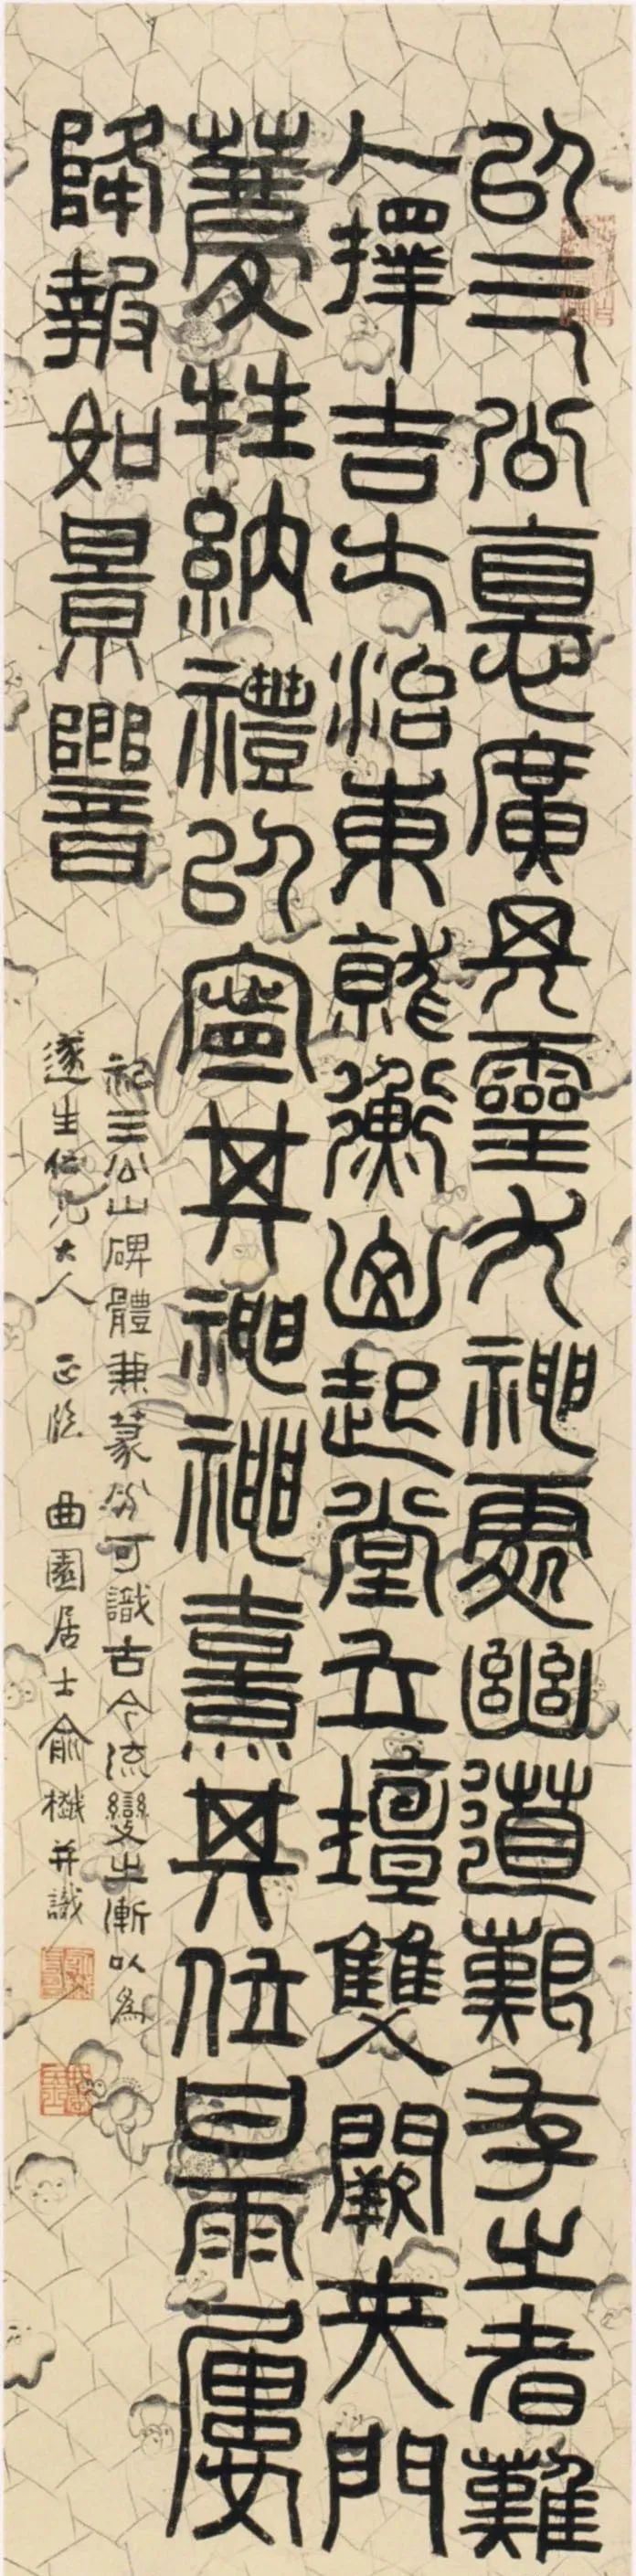 以三公悳廣其靈尤神處幽道艱存之者難
人擇吉土治東就衡山起堂立壇雙闕夾門
薦牲納禮以寧其神神熹其位甘雨屢
降報如景響
祀三公山碑體兼篆分可識古今流變之漸以爲
遂生仁兄大人 正臨 曲園居士俞樾并識